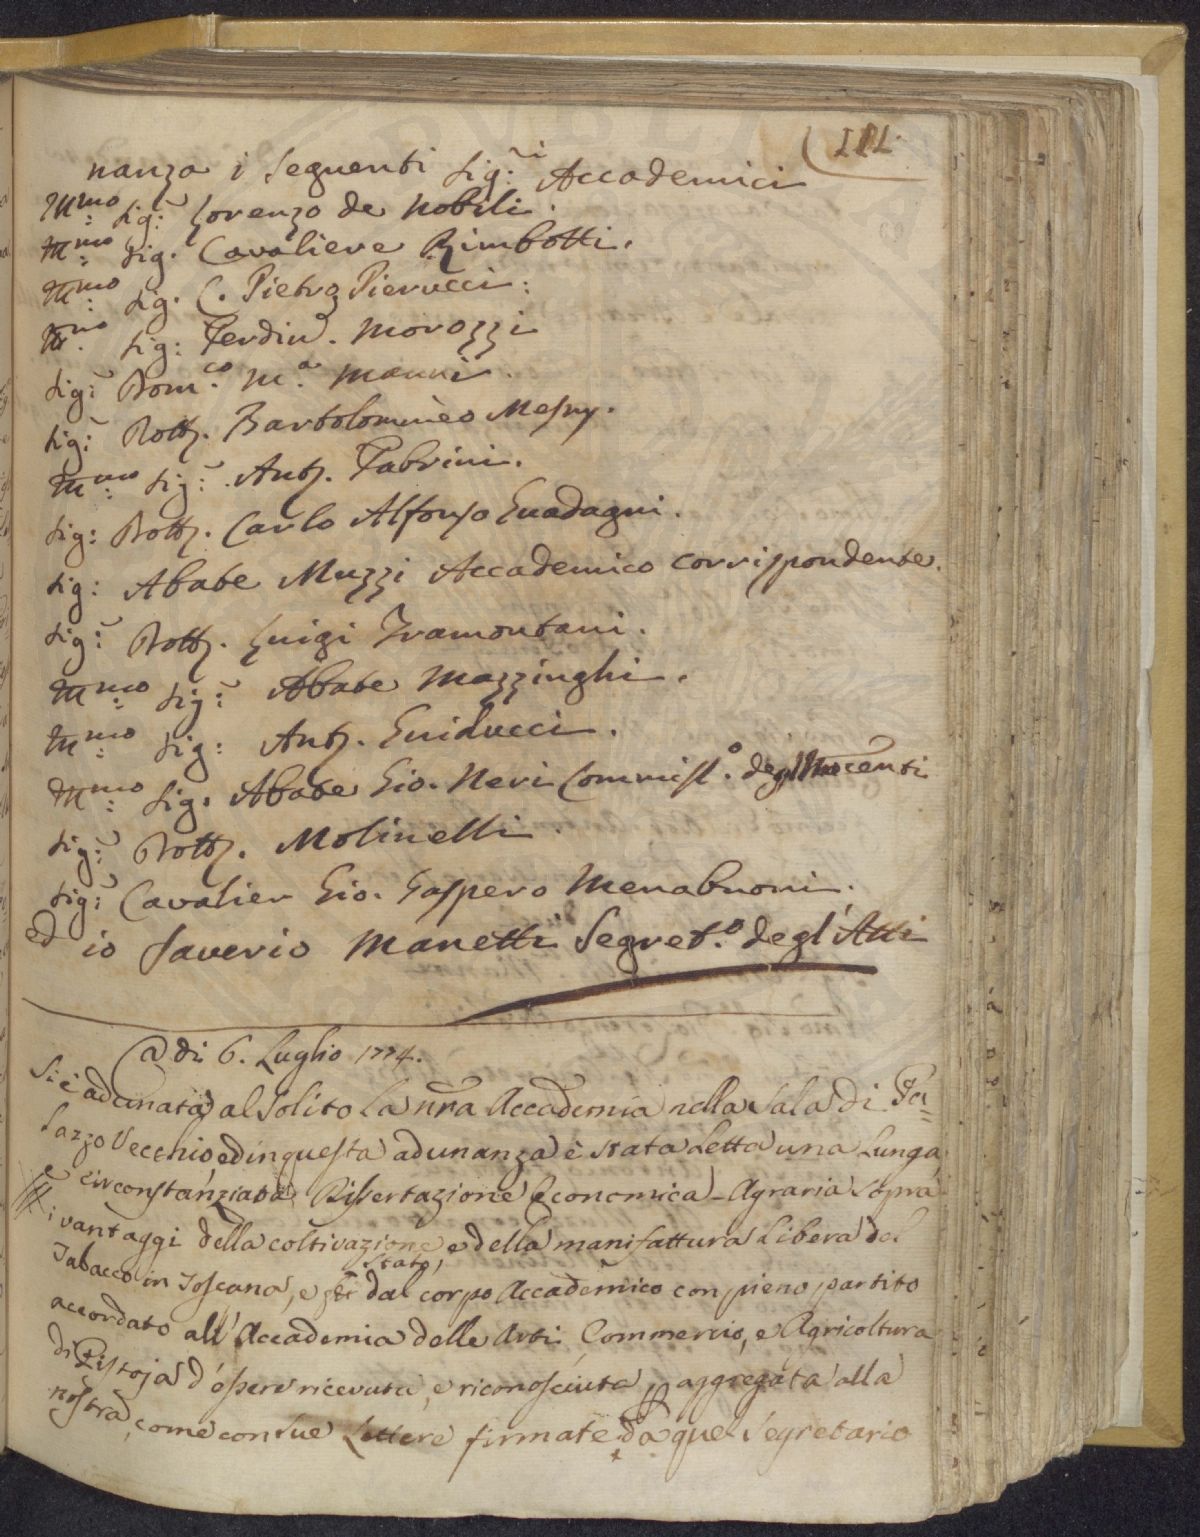 111.
nanza i Seguenti Sig:ri Accademici
Illmo: Sig: Lorenzo de Nobili.
Illmo: Sig. Cavaliere Rimbotti.
Illmo: Sig. C. Pietro Pierucci:
Illmo. Sig: Ferdin. Morozzi
Sig: Dom:co M:a Manni.
Sig: Dott. Bartolommeo Mesny.
Illmo: Sig: Ant. Fabrini.
Sig: Dott. Carlo Alfonso Guadagni.
Sig: Abate Muzzi Accademico corrispondente.
Sig: Dott. Luigi Tramontani.
Illmo: Sig: Abate Mazzinghi.
Illmo: Sig: Ant. Guiducci.
Illmo: Sig. Abate Gio. Neri Commiss:o degl'Inocenti
Sig: Dott. Molinelli.
Sig: Cavalier Gio. Gaspero Menabuoni.
ed io Saverio Manetti Segret:o degl'Atti
@ di 6. Luglio 1774.
Si è adunata al Solito La nra Accademia nella Sala di Pa=
lazzo Vecchio, ed in questa adunanza è stata Letta una Lunga,
e circonstanziata Dissertazione Economica-Agraria Sopra
i vantaggi della coltivazione, e della manifattura Libera del
Tabacco in Toscana, e stato, dal corpo Accademico con pieno partito
accordato all'Accademia delle Arti, Commercio, e Agricoltura
di Pistoja d'essere ricevuta, e riconosciuta p aggregata alla
nostra, come con Sue Lettere firmate da quel Segretario